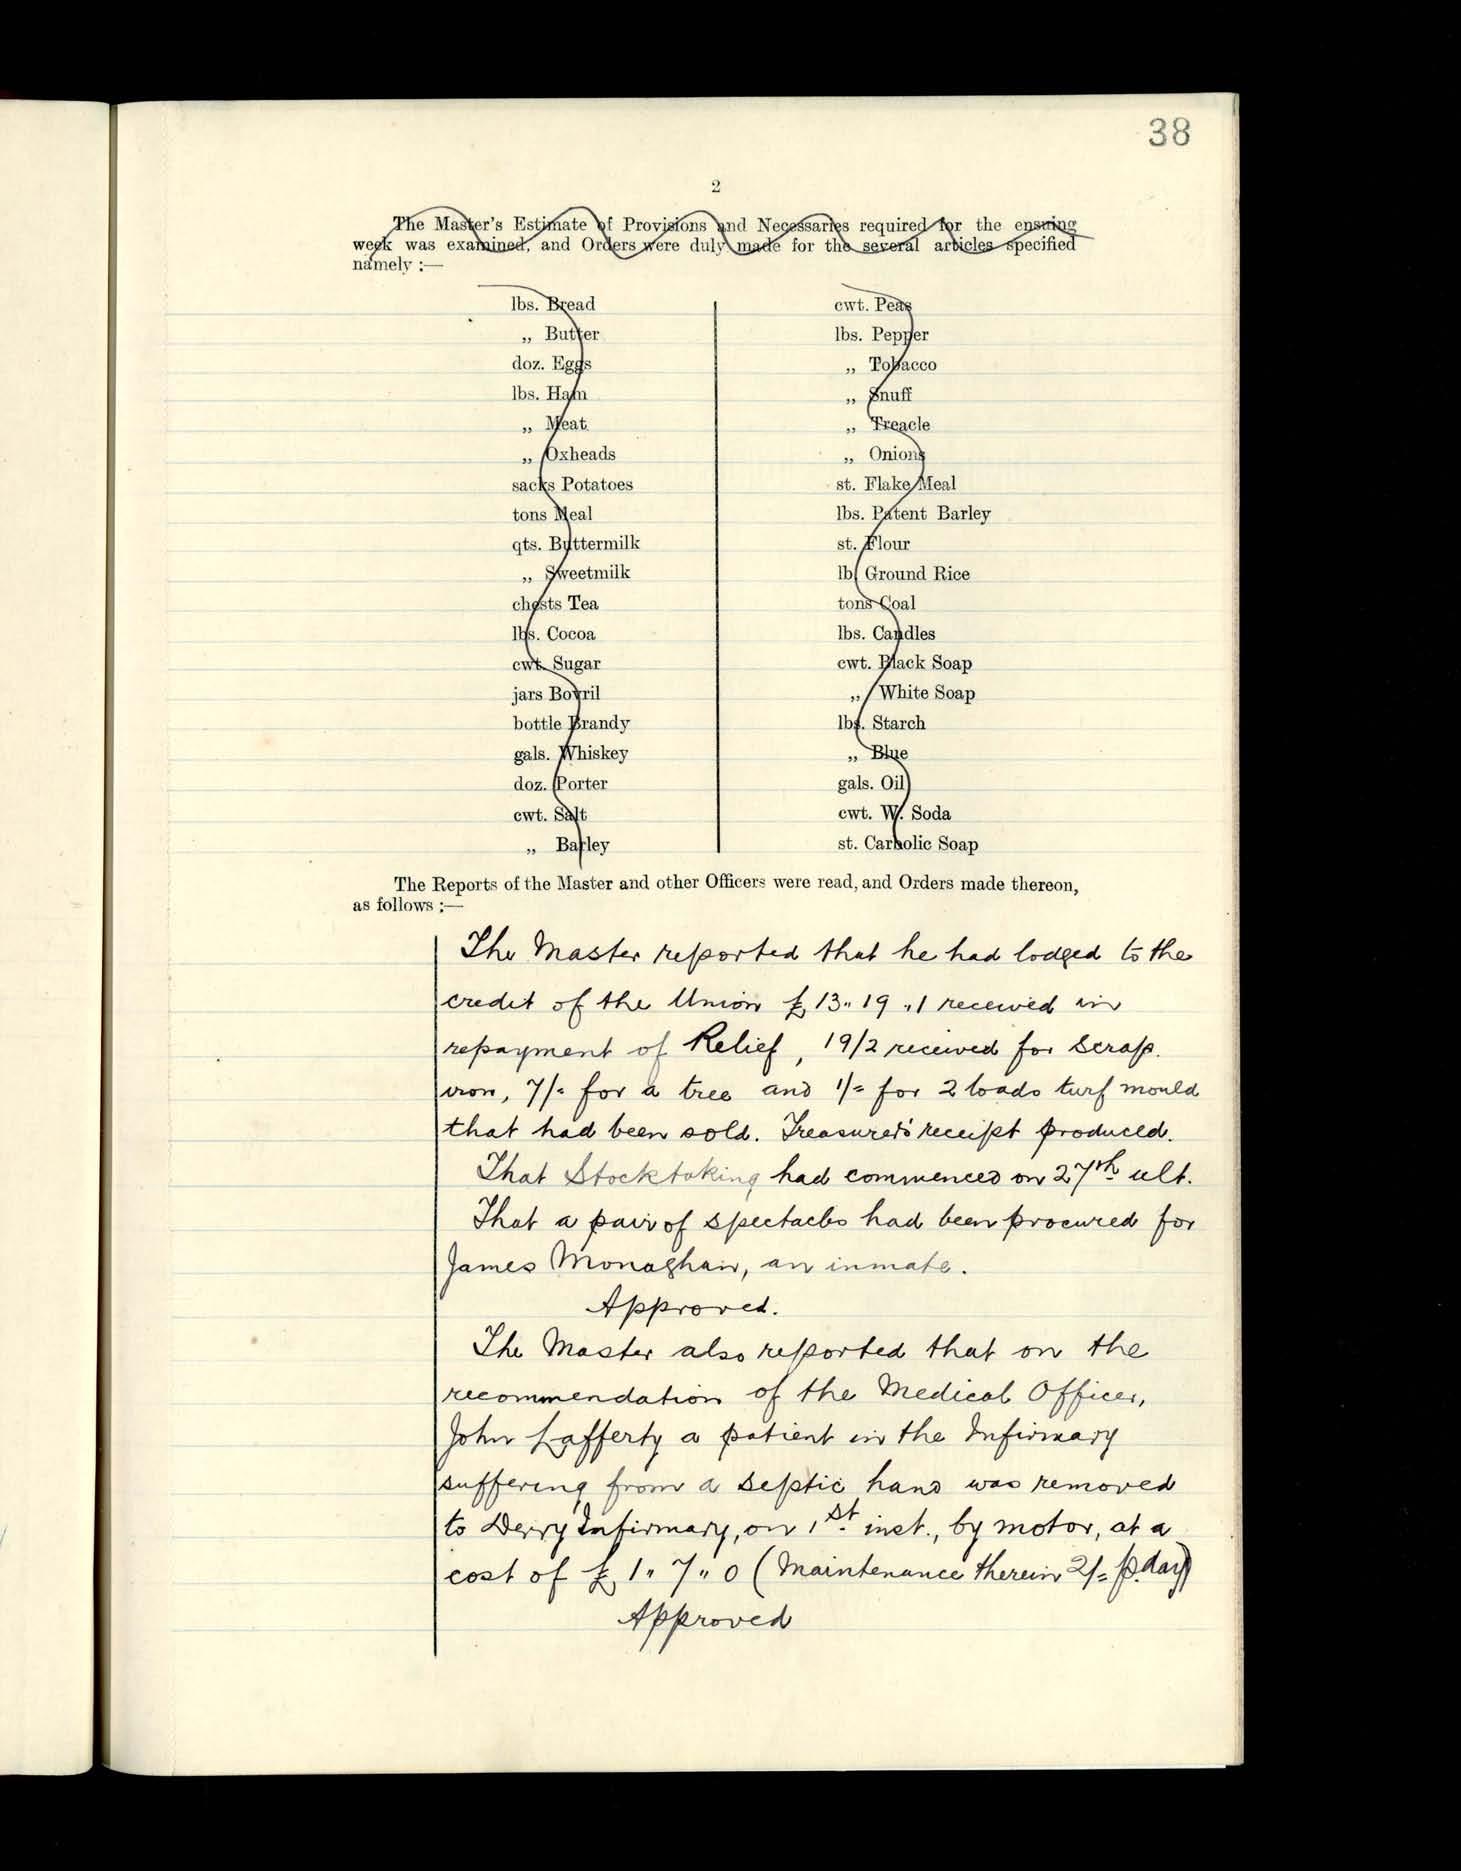 38
2
The Master's Estimate of Provisions and Necessaries required for the ensuing
week was examined, and Orders were duly made for the several articles specified
namely :—
lbs. Bread
„ Butter
doz. Eggs
lbs. Ham
„ Meat
„ Oxheads
sacks Potatoes
tons Meal
qts. Buttermilk
„ Sweetmilk
chests Tea
lbs. Cocoa
cwt. Sugar
jars Bovril
bottle Brandy
gals. Whiskey
doz. Porter
cwt. Salt
„ Barley
cwt. Peas
lbs. Pepper
„ Tobacco
„ Snuff
„ Treacle
„ Onions
st. Flake Meal
lbs. Patent Barley
st. Flour
lb. Ground Rice
tons Coal
lbs. Candles
cwt. Black Soap
„ White Soap
lbs. Starch
„ Blue
gals. Oil
cwt. W. Soda
st. Carbolic Soap
The Reports of the Master and other Officers were read, and Orders made thereon,
as follows :—
The Master reported that he had lodged to the
credit of the Union £13„19„1 received in
repayment of Relief, 19/2 received for scrap
iron, 7/= for a tree and 1/= for 2 loads turf mould
that had been sold. Treasurer's receipt produced.
That Stocktaking had commenced on 27th ult.
That a pair of spectacles had been procured for
James Monaghan, an inmate.
Approved.
The Master also reported that on the
recommendation of the Medical Officer,
John Lafferty a patient in the Infirmary
suffering from a septic hand was removed
to Derry Infirmary, on 1st inst., by motor, at a
cost of £1„7„0 (Maintenance therein 2/= p. day)
Approved